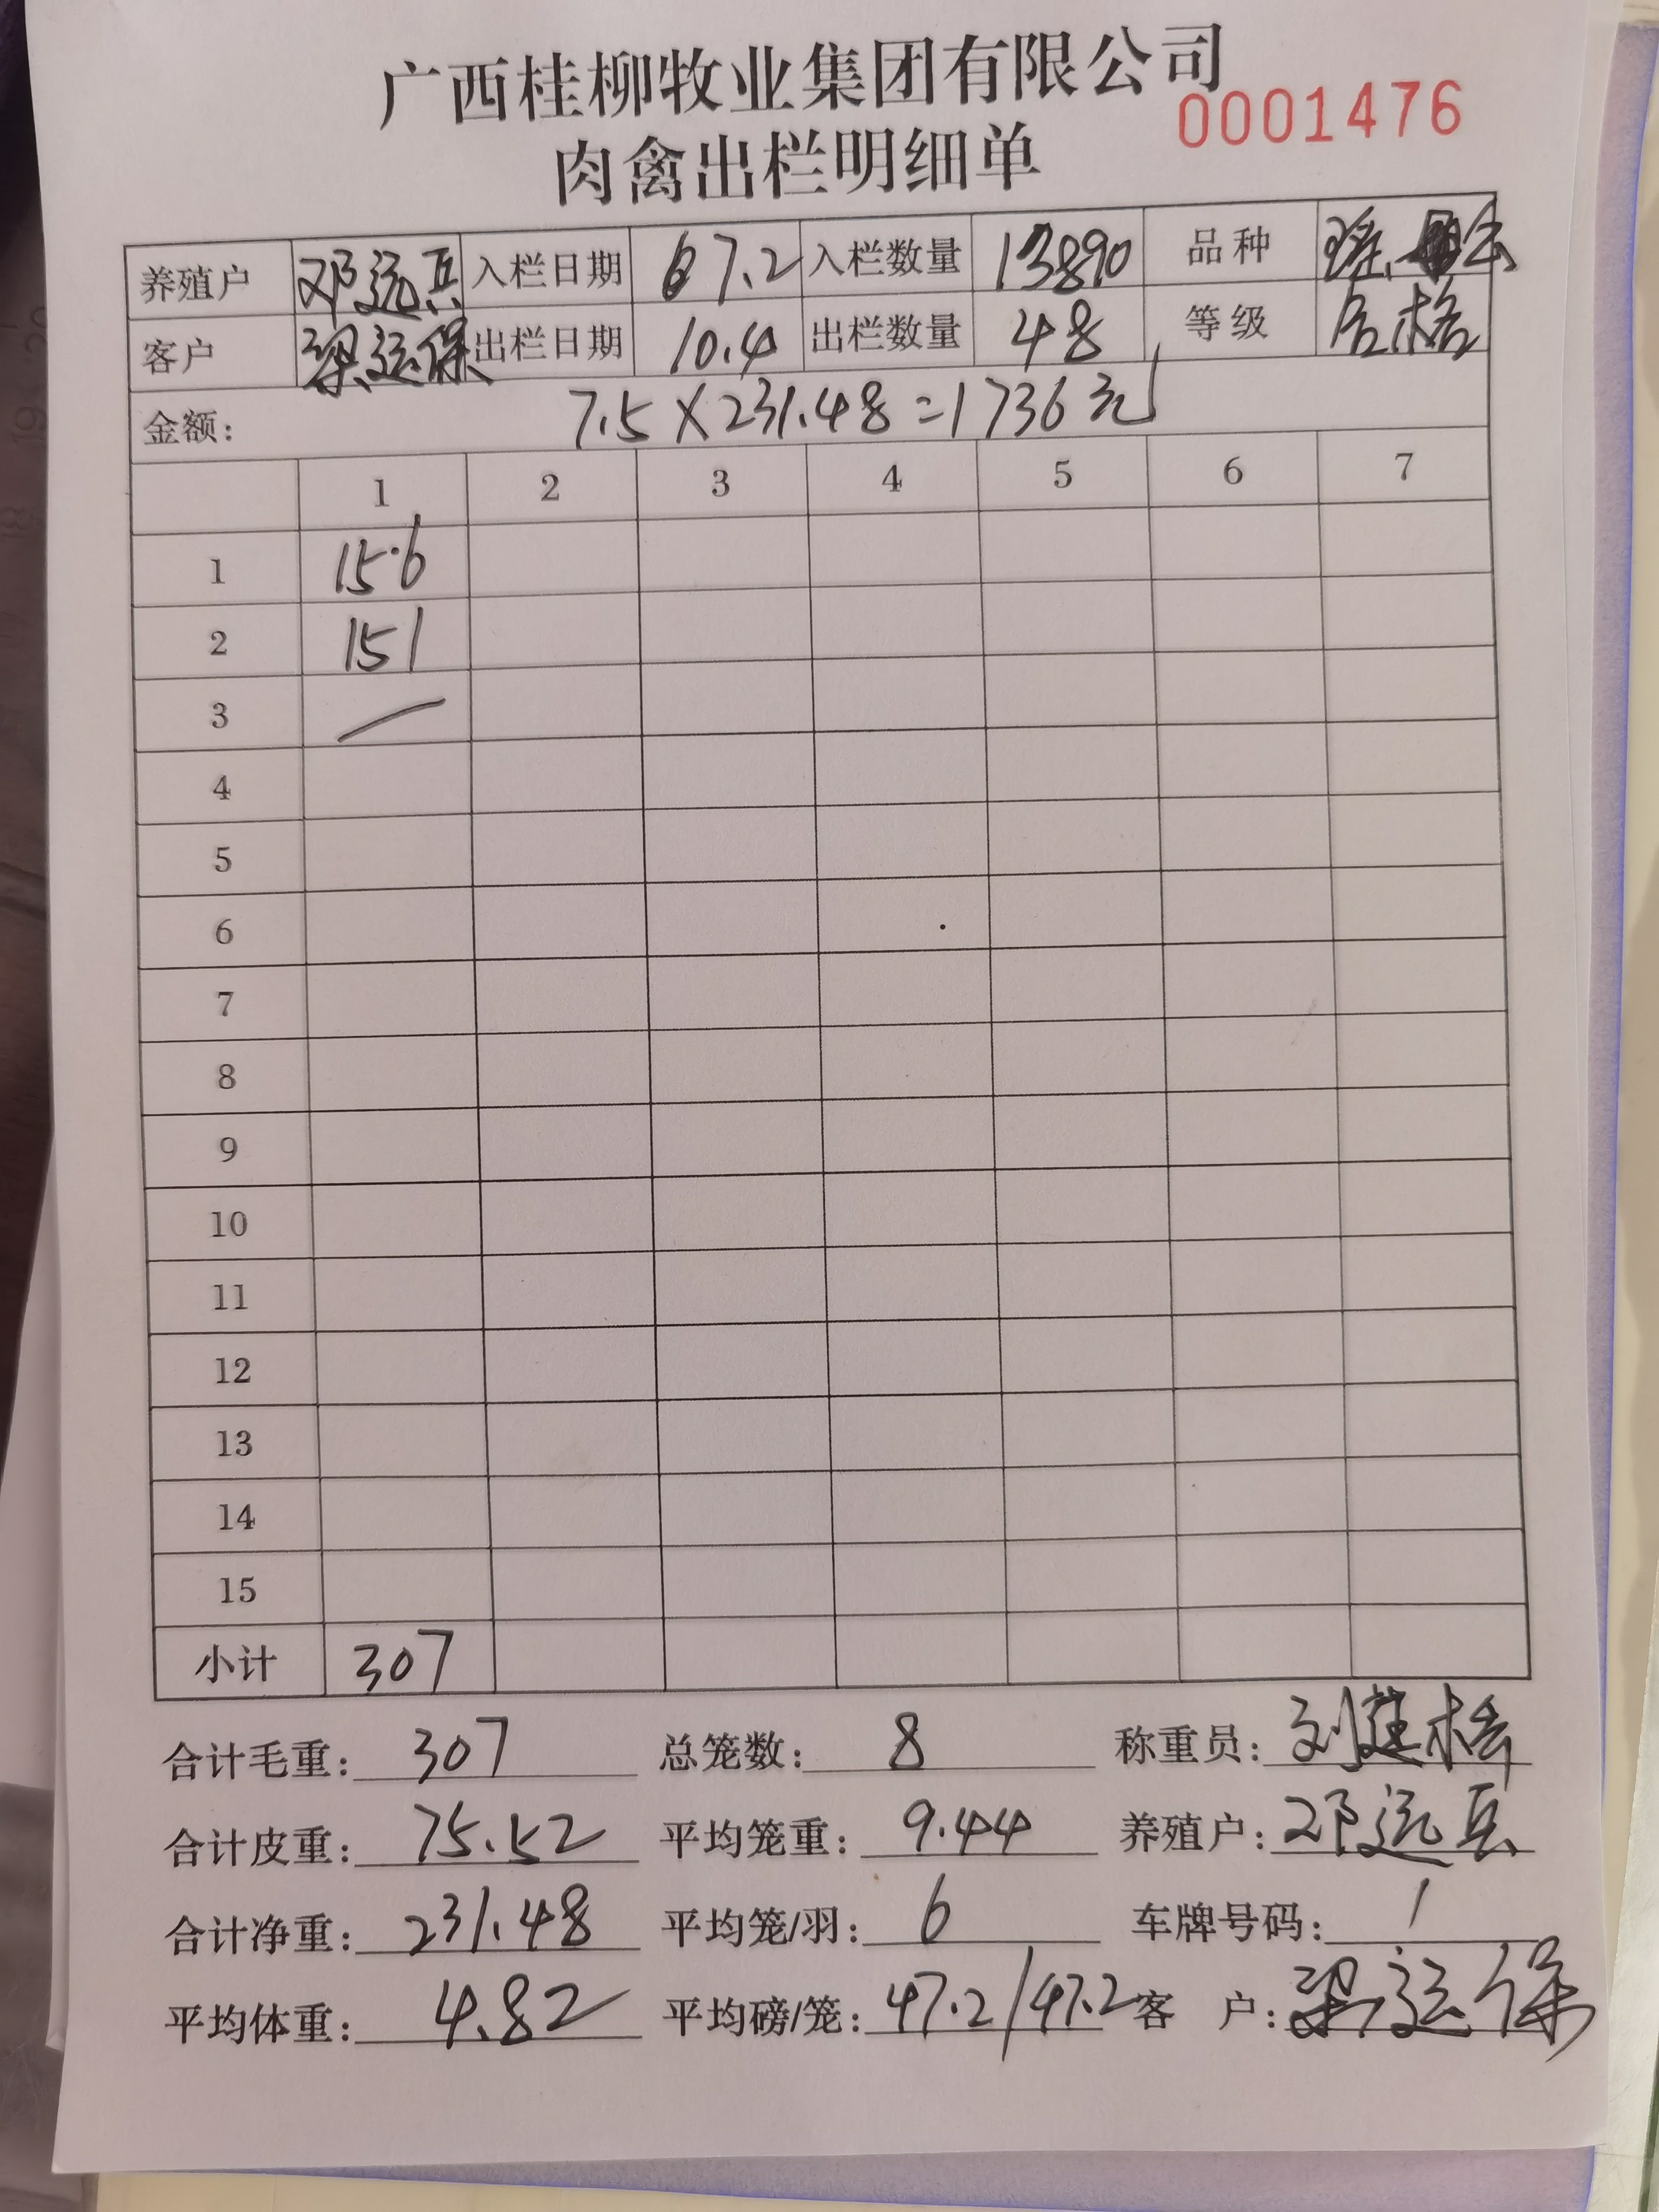 广西桂柳牧业集团有限公司
0001476
肉禽出栏明细单
养殖户 邓远兵 入栏日期 7.2 入栏数量 13890 品种 瑶
客户 梁运保 出栏日期 10.4 出栏数量 48 等级 合格
金额: 7.5×231.48=1736元
1 2 3 4 5 6 7
1 15·6
2 151
3 /
4
5
6
7
8
9
10
11
12
13
14
15
小计 307
合计毛重: 307 总笼数: 8 称重员: 刘
合计皮重: 75.52 平均笼重: 9.44 养殖户: 邓远兵
合计净重: 231.48 平均笼/羽: 6 车牌号码: /
平均体重: 4.82 平均磅/笼: 47.2/47.2 客 户: 梁运保